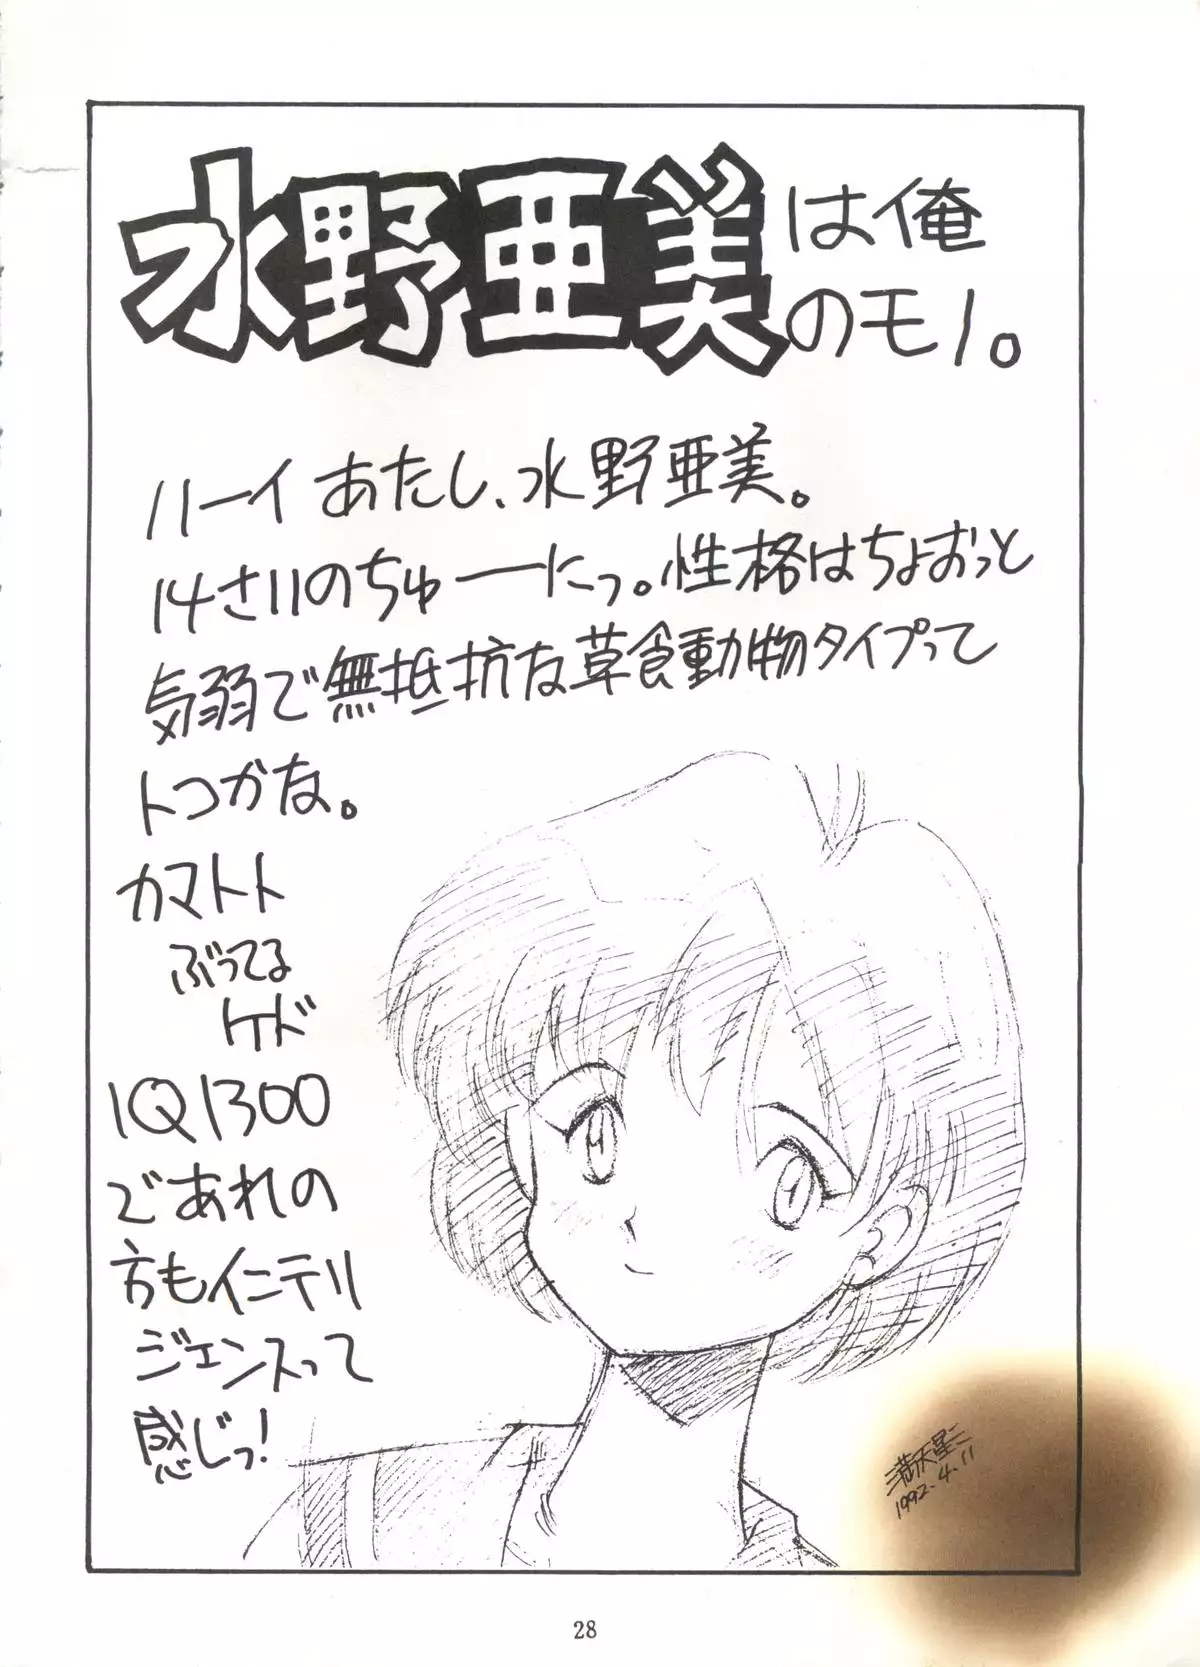 水野亜美は俺
のモノ。
ハーイ あたし、水野亜美。
14さいのちゅーにっ。性格はちょおっと
気弱で無抵抗な草食動物タイプって
トコかな。
カマトト
ぶってる
ケド
IQ1300
であれの
方もインテリ
ジェンスって
感じっ!
満天星
1992.4.11
28